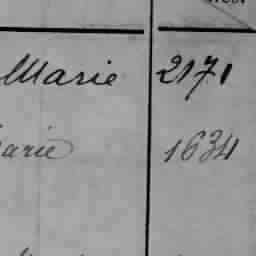 Marie 2171
arie 1634